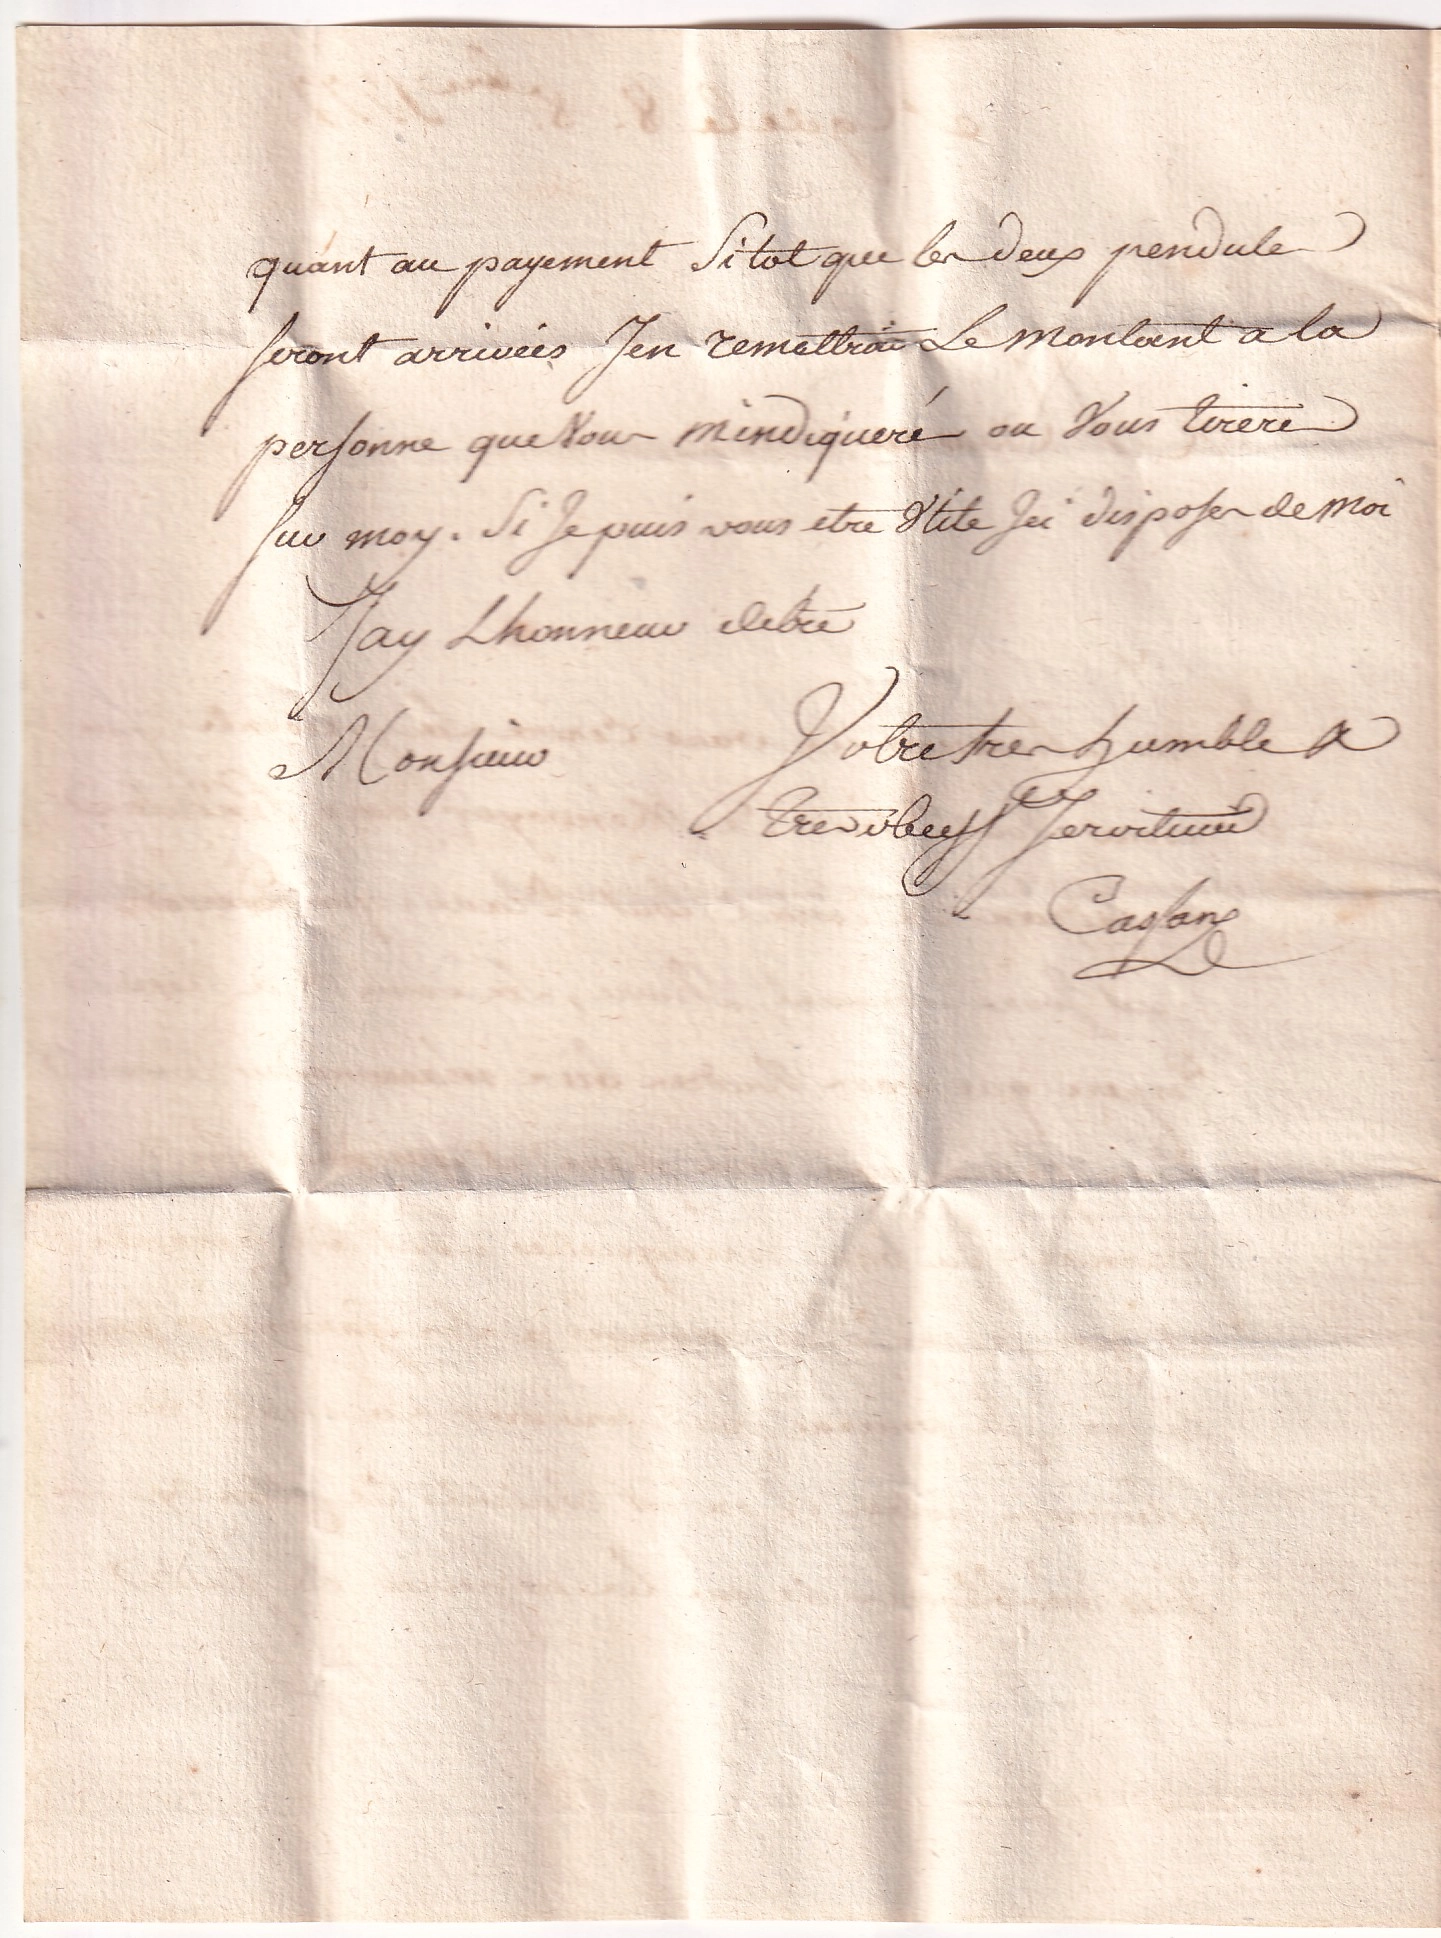 quant au payement Sitot que les deux pendules
seront arrivées Jen remettrai Le montant a la
personne que Vous mindiqueré ou Vous tireré
sur moy. Si Je puis vous etre Utile Jci disposes de moi
Jay Lhonneur detre
Monsieur Votre tres humble &
tres obeyss Serviteur
Cassan